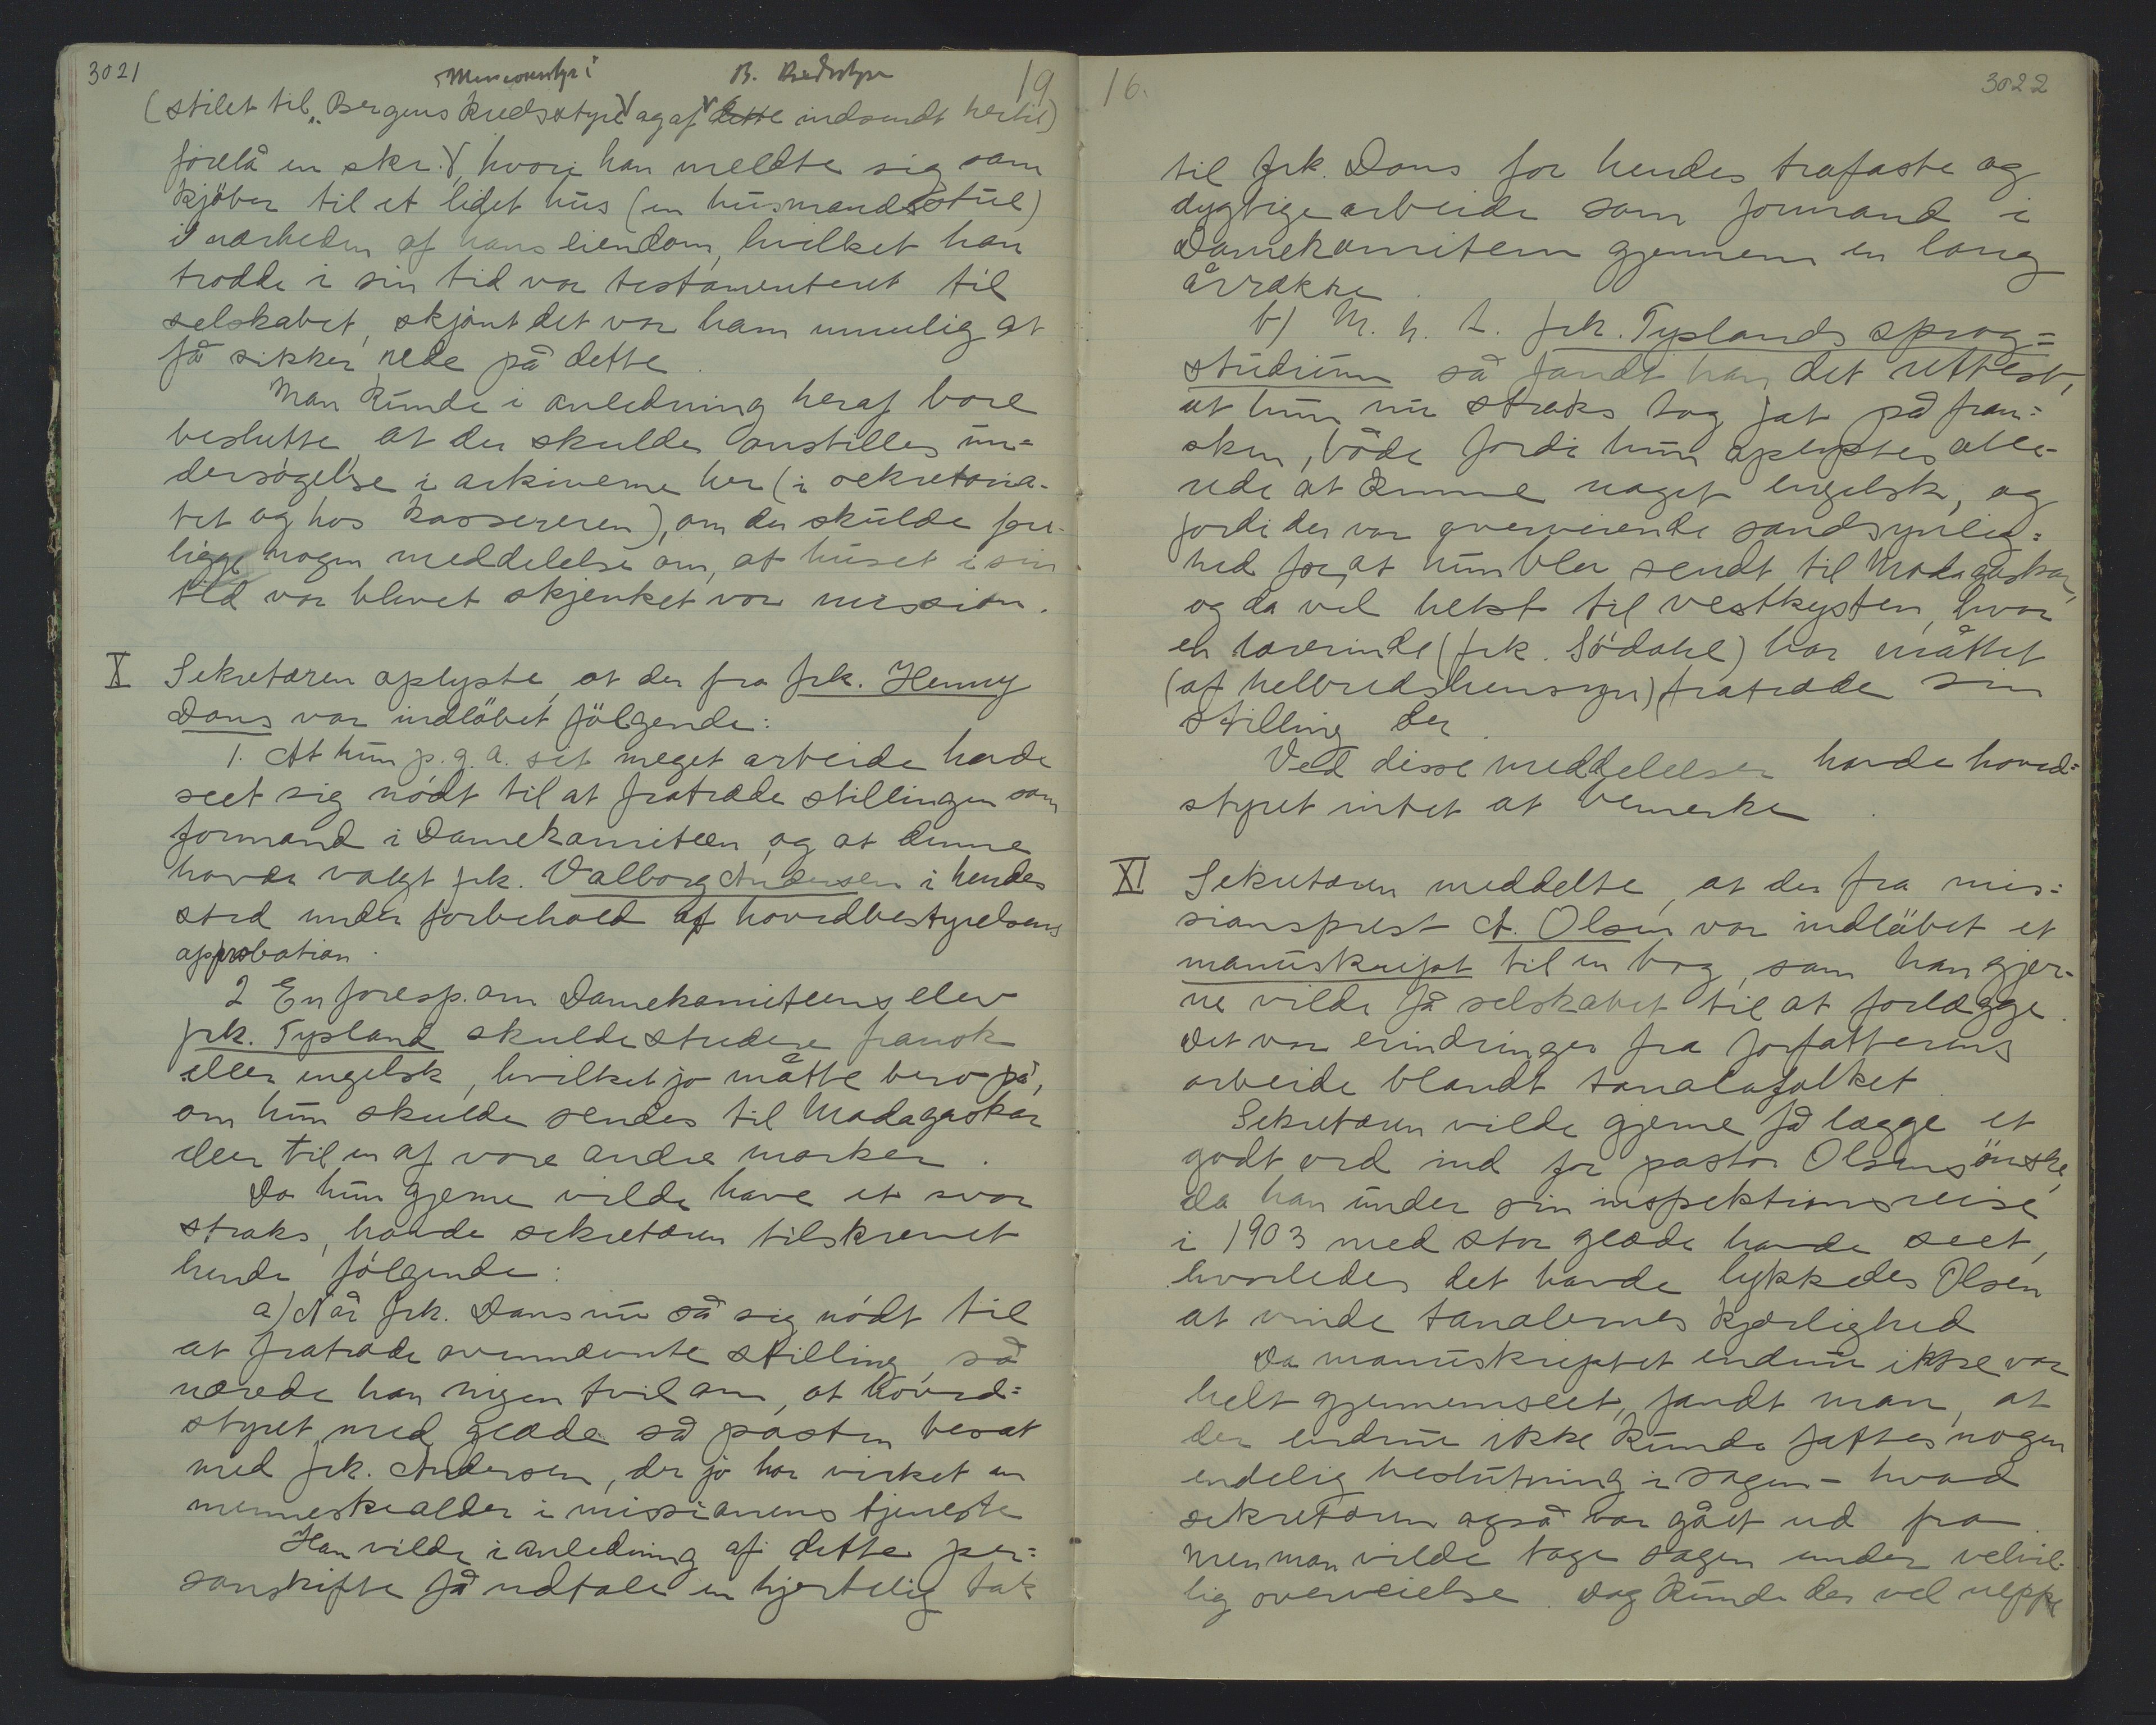 3021
B. Kredsstyre
19
(stilet til „Bergens Kredsstyre" og af dette indsendt hertil)
forelå en skr., hvori han meldte sig som
kjöber til et lidet hus (en husmandsstue)
i nærheden af hans eiendom, hvilket han
trodde i sin tid var testamenteret til
selskabet, skjönt det var ham umulig at
få sikker rede på dette.
Man kunde i anledning heraf bare
beslutte, at der skulde anstilles un=
dersögelse i arkiverne her (i sekretaria-
tet og hos kassereren), om der skulde fore-
ligge nogen meddelelse om, at huset i sin
tid var blevet skjenket vor mission.
X Sekretæren oplyste, at der fra frk. Henny
Dons var indlöbet fölgende:
1. At hun p. g. a. sit meget arbeide havde
seet sig nödt til at fratræde stillingen som
formand i Damekomiteen, og at denne
havde valgt frk. Valborg Andersen i hendes
sted under forbehold af hovedbestyrelsens
approbation.
2 En foresp. om Damekomiteens elev
frk. Tysland skulde studere fransk
eller engelsk, hvilket jo måtte bero på,
om hun skulde sendes til Madagaskar
eller til en af vore andre marker.
Da hun gjerne vilde have et svar
straks, havde sekretæren tilskrevet
hende fölgende:
a) Når frk. Dons nu så sig nödt til
at fratræde ovennevnte stilling, så
nærede han ingen tvil om, at hoved=
styret med glæde så posten besat
med frk. Andersen, der jo har virket en
menneskealder i missionens tjeneste
Han vilde i anledning af dette per=
sonskifte få udtale en hjertelig tak
16.
3022
til frk. Dons for hendes trofaste og
dygtige arbeide som formand i
Damekomiteen gjennem en lang
årrække.
b) M. h. t. frk. Tyslands sprog=
studium så fandt han det rettest,
at hun nu straks tog fat på fran=
sken, både fordi hun oplystes alle-
rede at kunne noget engelsk, og
fordi der var overveiende sandsynlig=
hed for, at hun blev sendt til Madagaskar,
og da vel helst til vestkysten, hvor
en lærerinde (frk. Södahl) har måttet
(af helbredshensyn) fratræde sin
stilling der.
Ved disse meddelelser havde hoved=
styret intet at bemerke.
XI Sekretæren meddelte, at der fra mis=
sionsprest A. Olsen var indlöbet et
manuskript til en bog, som han gjer-
ne vilde få selskabet til at forlægge.
Det var erindringer fra forfatterens
arbeide blandt tanalafolket.
Sekretæren vilde gjerne få lægge et
godt ord ind for pastor Olsens önske,
da han under sin inspektionsreise
i 1903 med stor glæde havde seet,
hvorledes det havde lykkedes Olsen
at vinde tanalernes kjærlighed
Da manuskriptet endnu ikke var
helt gjennemseet, fandt man, at
der endnu ikke kunde fattes nogen
endelig beslutning i sagen – hvad
sekretæren også var gået ud fra.
Men man vilde tage sagen under velvil-
lig overveielse. Dog kunde der vel neppe